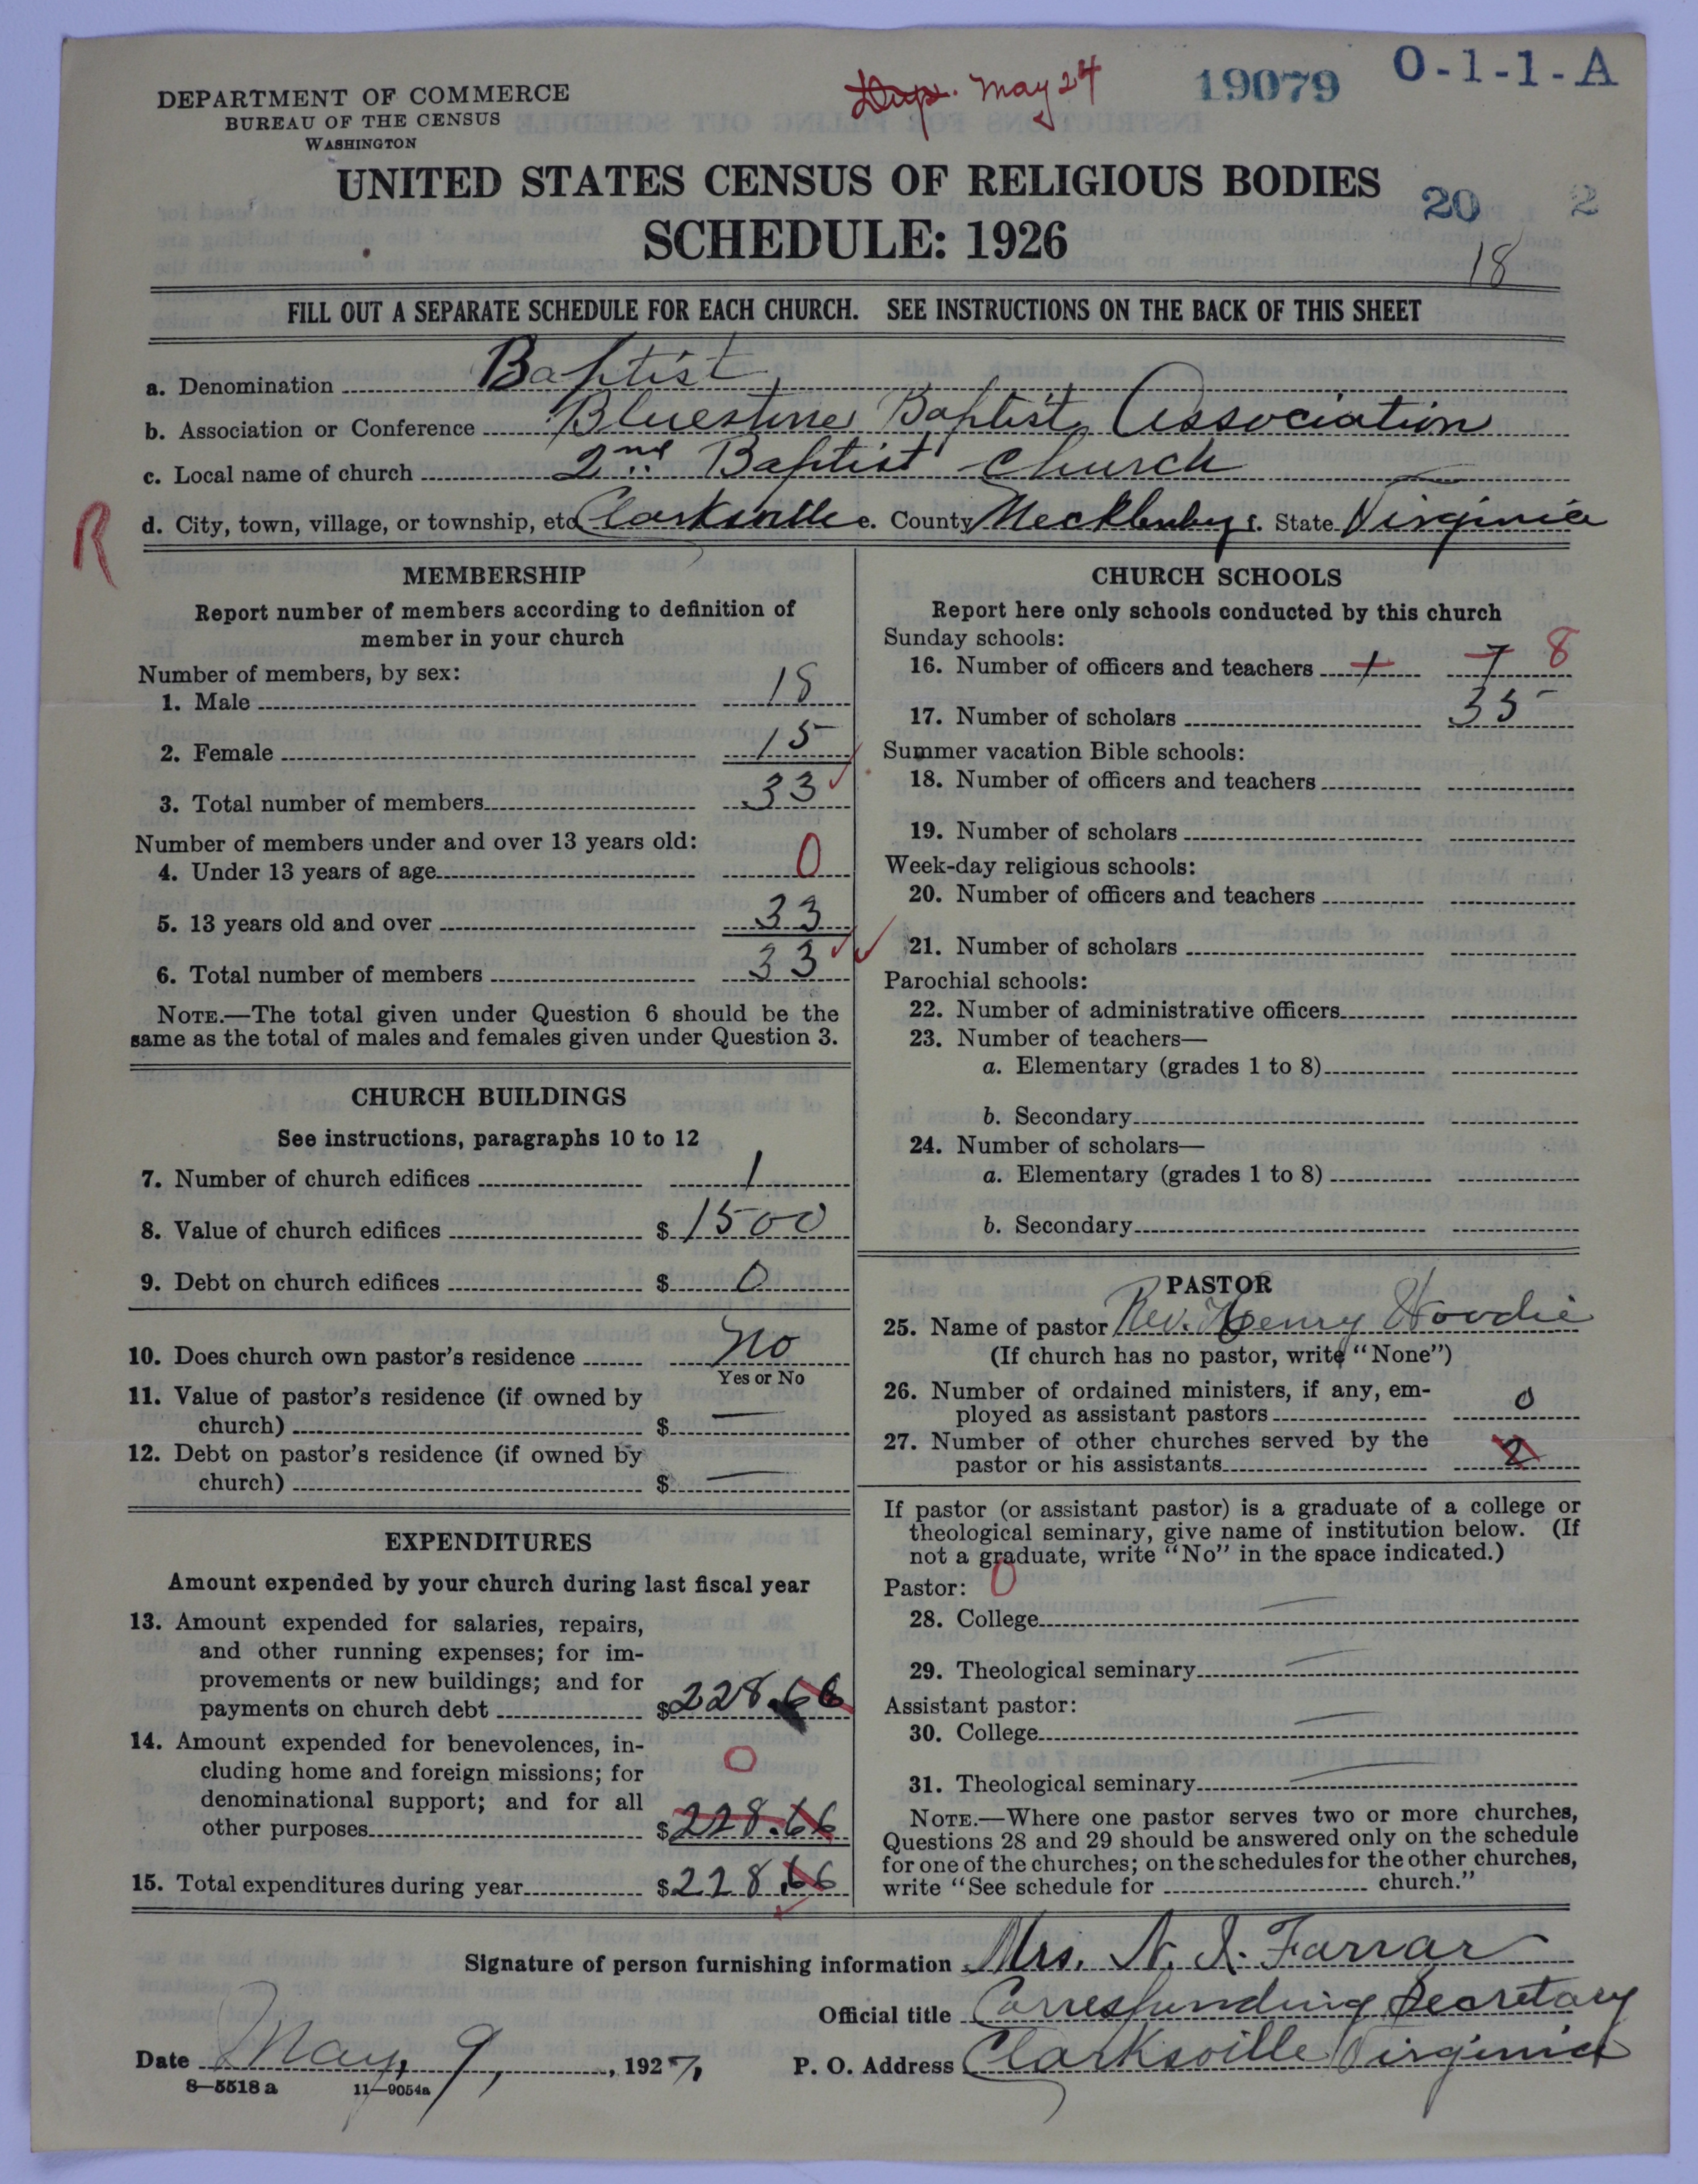 DEPARTMENT OF COMMERCE
BUREAU OF THE CENSUS
WASHINGTON
Dup. May 24
19079
O-1-1-A
UNITED STATES CENSUS OF RELIGIOUS BODIES
SCHEDULE: 1926
20 2
18
FILL OUT A SEPARATE SCHEDULE FOR EACH CHURCH. SEE INSTRUCTIONS ON THE BACK OF THIS SHEET
a. Denomination Baptist
b. Association or Conference Bluestone Baptist Association
c. Local name of church 2nd Baptist Church
R
d. City, town, village, or township, etc. Clarksville e. County Mecklenburg f. State Virginia
MEMBERSHIP
Report number of members according to definition of
member in your church
Number of members, by sex:
1. Male 18
2. Female 15
3. Total number of members 33
Number of members under and over 13 years old:
4. Under 13 years of age 0
5. 13 years old and over 33
6. Total number of members 33
NOTE.—The total given under Question 6 should be the
same as the total of males and females given under Question 3.
CHURCH BUILDINGS
See instructions, paragraphs 10 to 12
7. Number of church edifices 1
8. Value of church edifices $ 1500
9. Debt on church edifices $ 0
10. Does church own pastor's residence No
Yes or No
11. Value of pastor's residence (if owned by
church) $ —
12. Debt on pastor's residence (if owned by
church) $ —
EXPENDITURES
Amount expended by your church during last fiscal year
13. Amount expended for salaries, repairs,
and other running expenses; for im-
provements or new buildings; and for
payments on church debt $ 228.66
14. Amount expended for benevolences, in-
cluding home and foreign missions; for 0
denominational support; and for all
other purposes $ 228.66
15. Total expenditures during year $ 228.66
CHURCH SCHOOLS
Report here only schools conducted by this church
Sunday schools:
16. Number of officers and teachers 1 7 8
17. Number of scholars 35
Summer vacation Bible schools:
18. Number of officers and teachers
19. Number of scholars
Week-day religious schools:
20. Number of officers and teachers
21. Number of scholars
Parochial schools:
22. Number of administrative officers
23. Number of teachers—
a. Elementary (grades 1 to 8)
b. Secondary
24. Number of scholars—
a. Elementary (grades 1 to 8)
b. Secondary
PASTOR
25. Name of pastor Rev. Henry Woodie
(If church has no pastor, write "None")
26. Number of ordained ministers, if any, em-
ployed as assistant pastors 0
27. Number of other churches served by the
pastor or his assistants 2
If pastor (or assistant pastor) is a graduate of a college or
theological seminary, give name of institution below. (If
not a graduate, write "No" in the space indicated.)
Pastor: 0
28. College —
29. Theological seminary —
Assistant pastor:
30. College —
31. Theological seminary —
NOTE.—Where one pastor serves two or more churches,
Questions 28 and 29 should be answered only on the schedule
for one of the churches; on the schedules for the other churches,
write "See schedule for church."
Signature of person furnishing information Mrs. N. I. Farrar
Official title Corresponding Secretary
Date May, 9, , 1927, P. O. Address Clarksville Virginia
8—5518 a 11—9054a